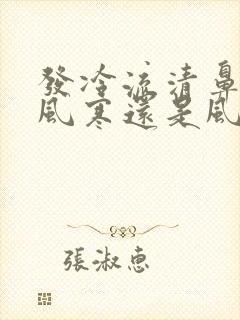 發冷流清鼻
風寒還是風
張淑惠